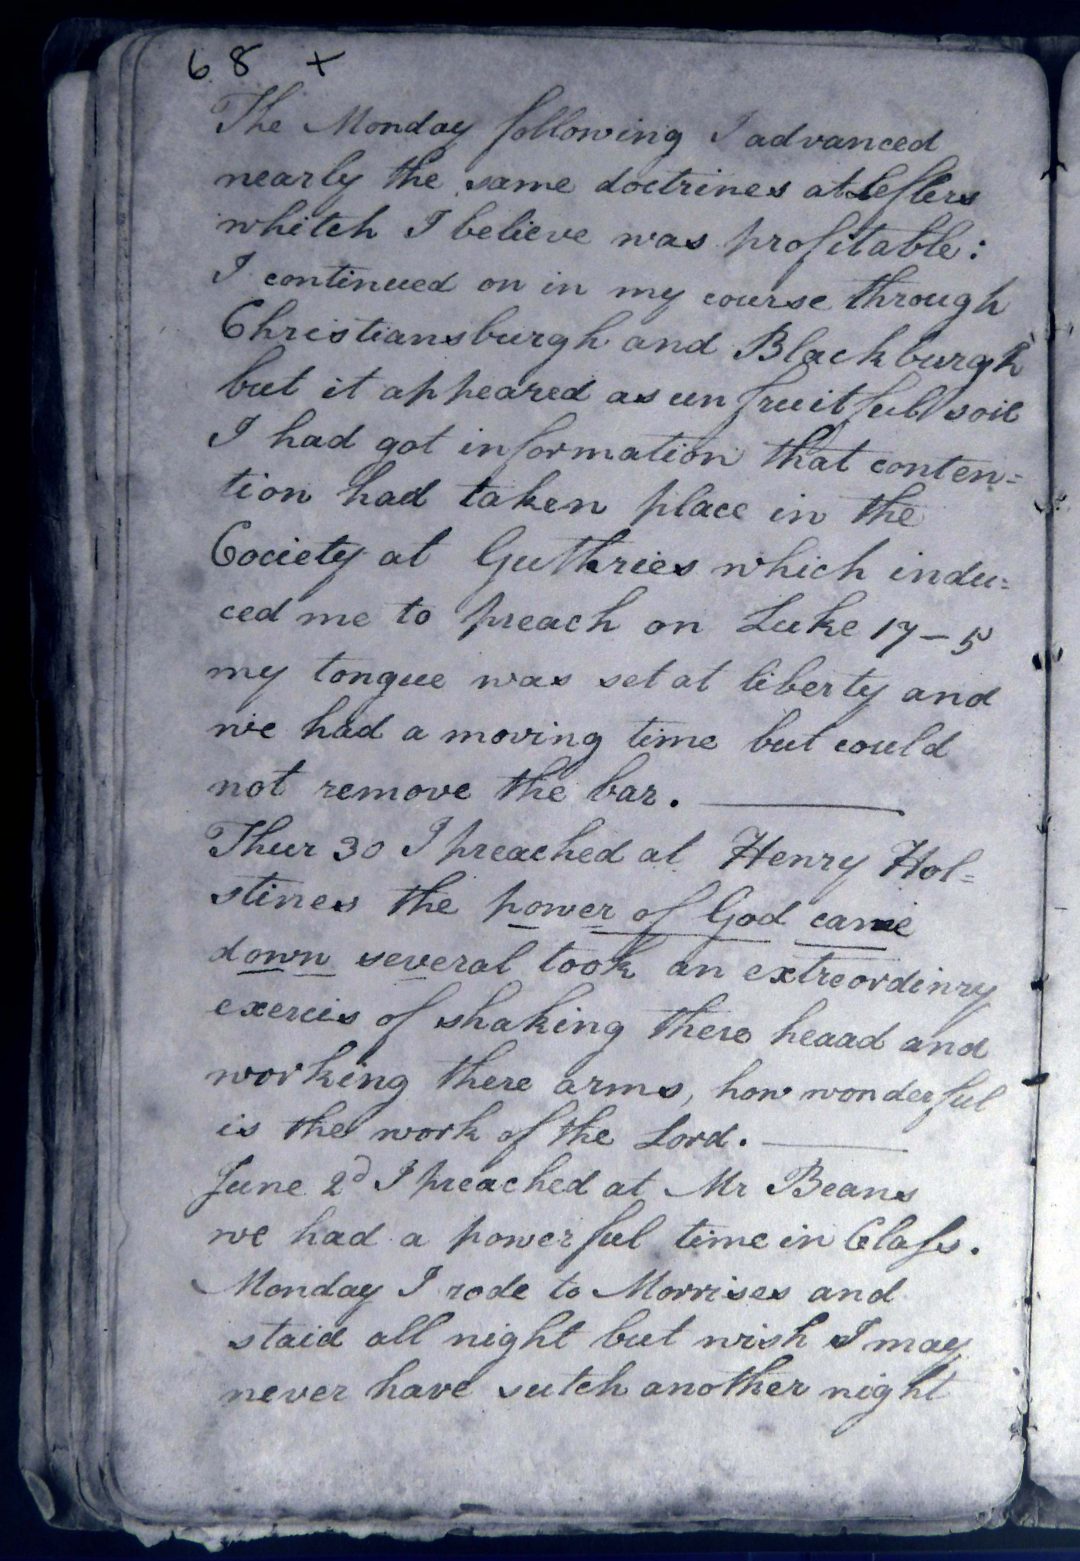 68 +
The Monday following I advanced
nearly the same doctrines at Leflers
whitch I believe was profitable:
I continued on in my course through
Christiansburgh and Blackburgh
but it appeared as unfruitful soil
I had got information that conten=
tion had taken place in the
Society at Guthries which indu=
ced me to preach on Luke 17-5
my tongue was set at liberty and
we had a moving time but could
not remove the bar.
Thur 30 I preached at Henry Hol=
stines the power of God came
down several took an extreordinry
exercis of shaking there heaad and
working there arms, how wonderful
is the work of the Lord.
June 2d I preached at Mr Beans
we had a powerful time in Class.
Monday I rode to Morrises and
staid all night but wish I may
never have sutch another night